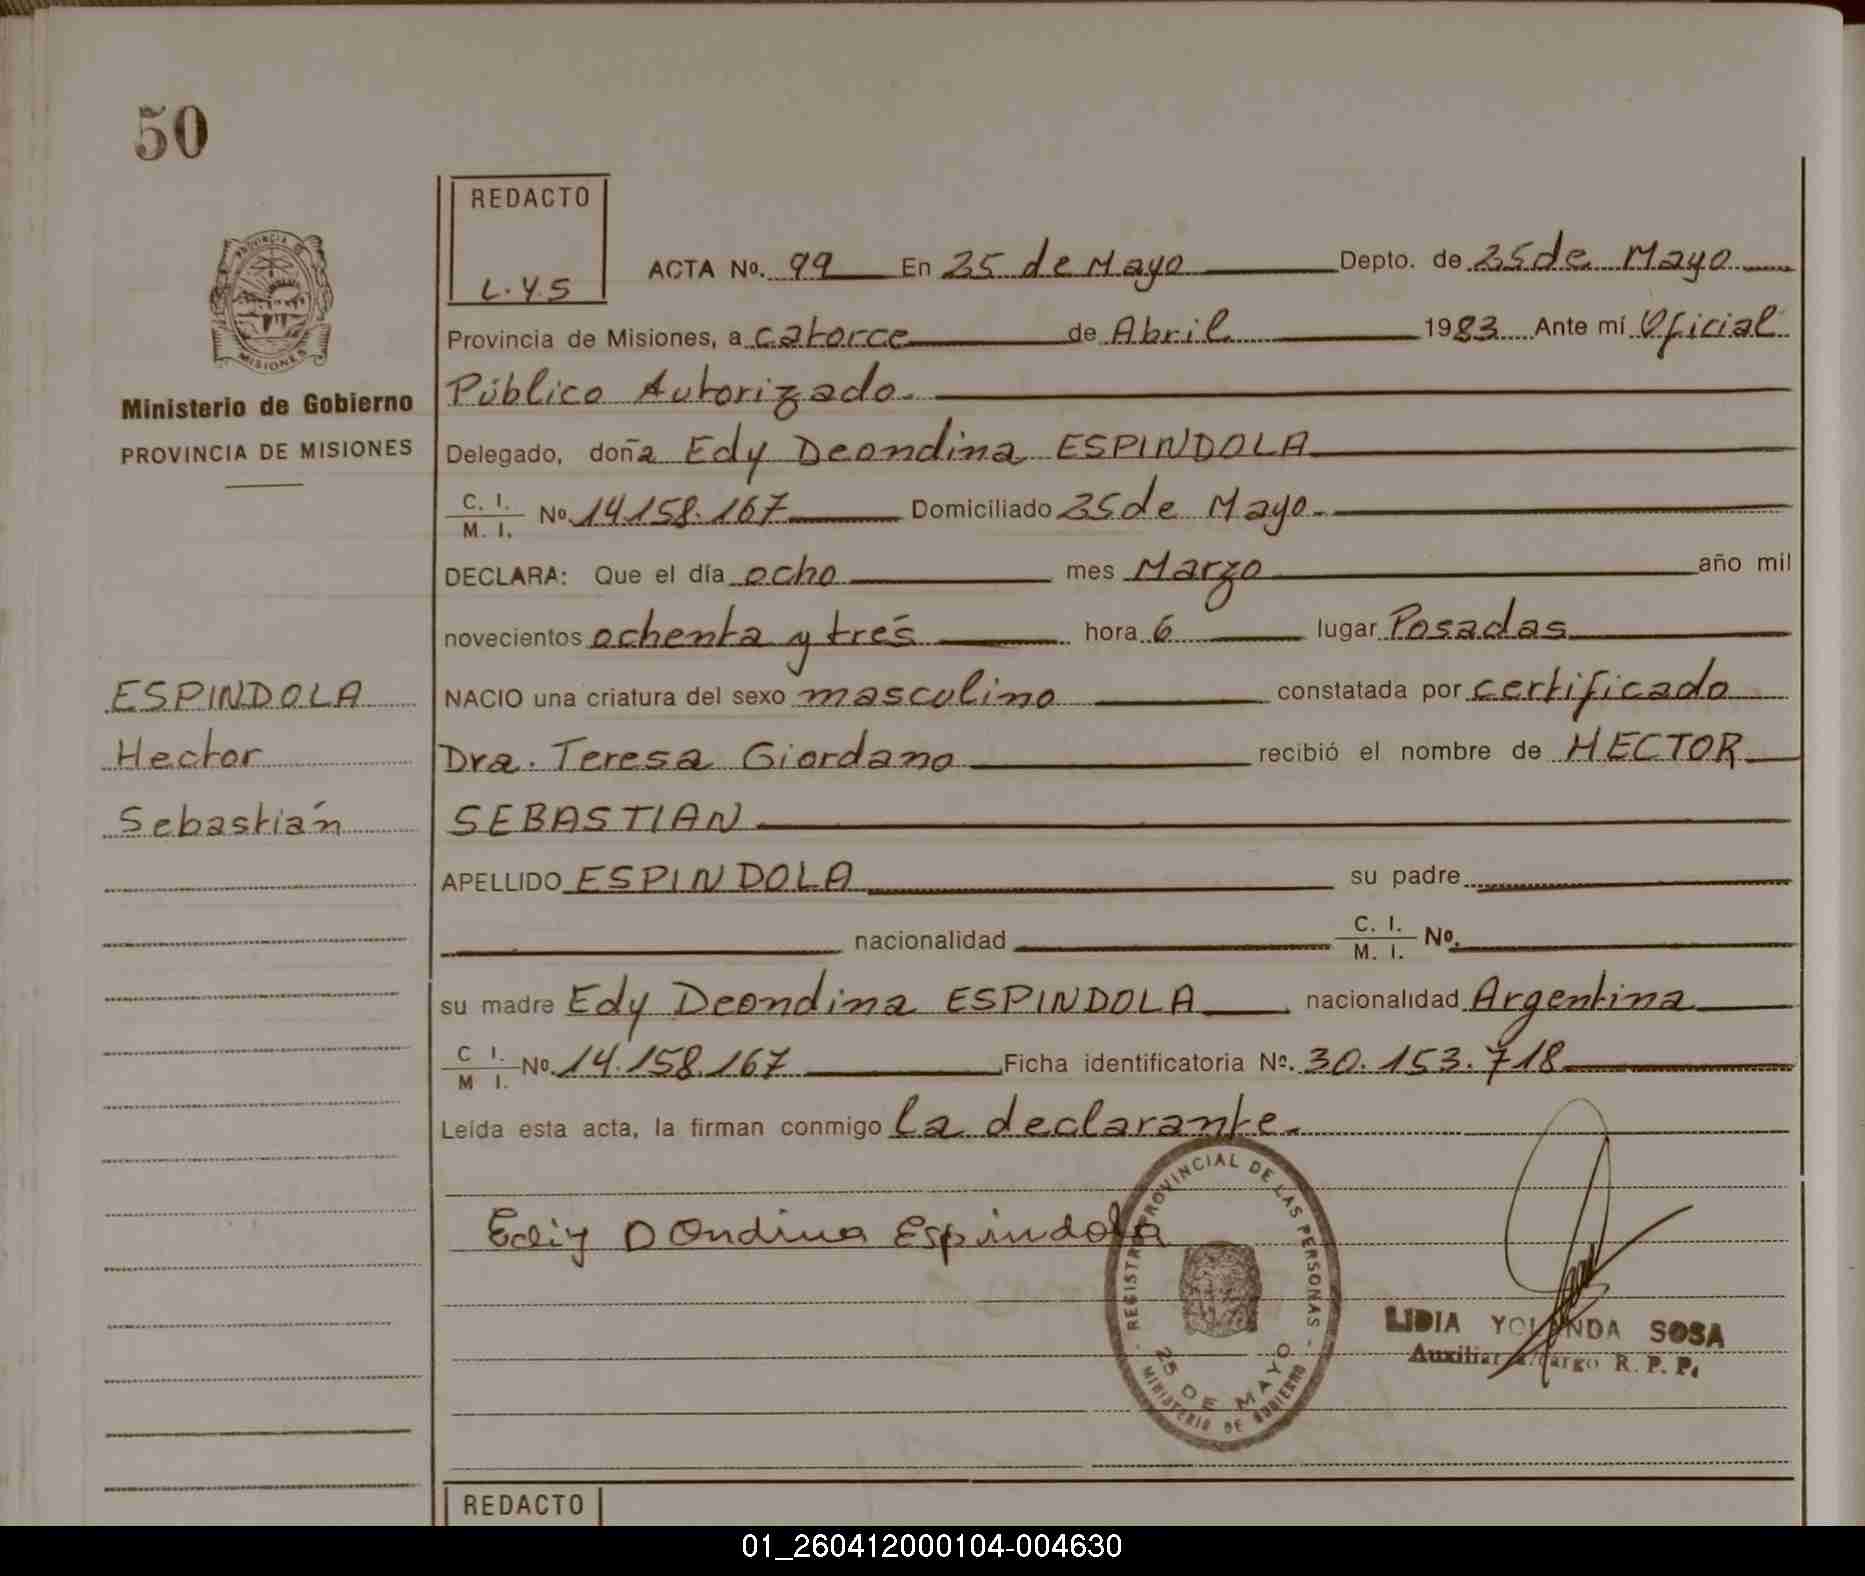 50
REDACTO
L.Y.S
PROVINCIA DE
MISIONES
Ministerio de Gobierno
PROVINCIA DE MISIONES
ACTA No. 99 En 25 de Mayo Depto. de 25 de Mayo
Provincia de Misiones, a catorce de Abril 1983 Ante mí Oficial
Público Autorizado.
Delegado, doña Edy Deondina ESPINDOLA
C. I. / M. I. No. 14158.167 Domiciliado 25 de Mayo.
DECLARA: Que el día ocho mes Marzo año mil
novecientos ochenta y tres hora 6 lugar Posadas
ESPINDOLA
Hector
Sebastián
NACIO una criatura del sexo masculino constatada por certificado
Dra. Teresa Giordano recibió el nombre de HECTOR
SEBASTIAN
APELLIDO ESPINDOLA su padre
nacionalidad C. I. / M. I. No.
su madre Edy Deondina ESPINDOLA nacionalidad Argentina
C I. / M I. No. 14.158.167 Ficha identificatoria No. 30.153.718
Leida esta acta, la firman conmigo la declarante.
Ediy DOndina Espindola
REGISTRO PROVINCIAL DE LAS PERSONAS
25 DE MAYO
MINISTERIO DE GOBIERNO
LIDIA YOLANDA SOSA
Auxiliar a/cargo R. P. P.
REDACTO
01_260412000104-004630